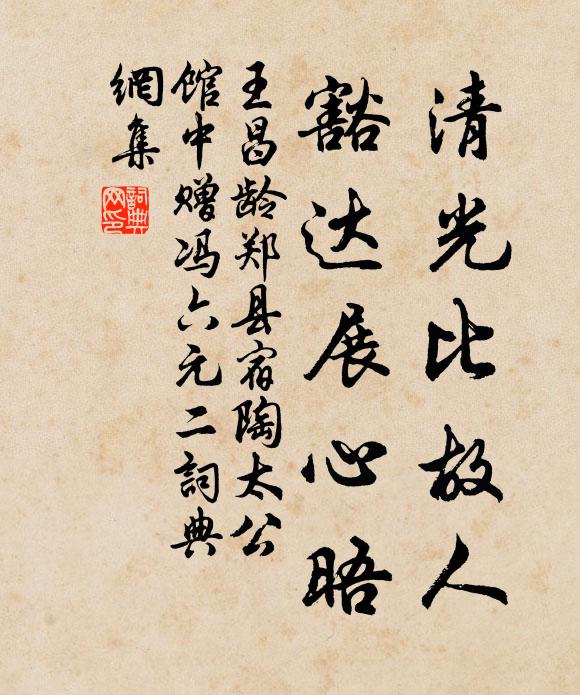 清光比故人
豁达展心晤
王昌龄郑县宿陶太公
馆中赠冯六元二詞典
網集
詞典
网印